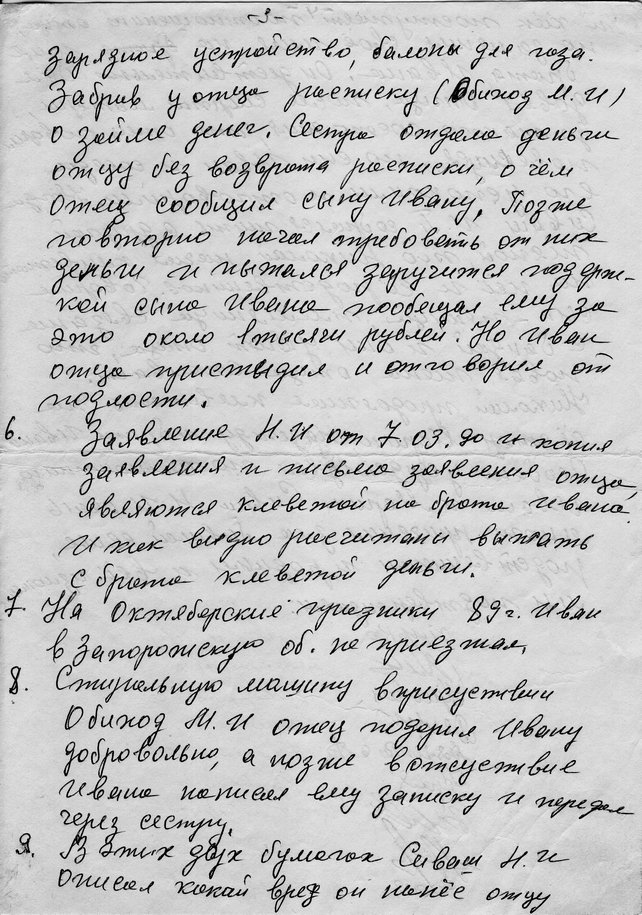 -3-
зарядное устройство, балоны для газа.
Забрив у отца расписку (Обиход М.И)
о займе денег. Сестра отдала деньги
отцу без возврата расписки, о чём
отец сообщил сыну Ивану. Позже
повторно начал требовать от них
деньги и пытался заручится поддерж-
кой сына Ивана пообещал ему за
это около 1 тысячи рублей. Но Иван
отца пристыдил и отговорил от
подлости.
6. Заявление Н.И от 7.03.90 и копия
заявления и письмо заявления отца,
являются клеветой на брата Ивана.
И как видно расчитаны выжать
с брата клеветой деньги.
7. На Октябрские празники 89г. Иван
в Запорожскую об. не приезжал.
8. Стиральную машину в присуствии
Обиход М.И отец подарил Ивану
добровольно, а позже в отсуствие
Ивана написал ему записку и передал
через сестру.
9. В этих двух бумагах Сиваш Н.И
описал какай вред он нанёс отцу